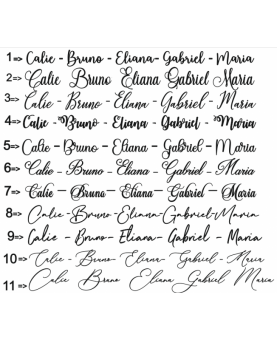 1=> Calie - Bruno - Eliana- Gabriel - Maria
2=> Calie Bruno Eliana Gabriel Maria
3=> Calie - Bruno - Eliana - Gabriel - Maria
4=> Calie - Bruno - Eliana - Gabriel - Maria
5=> Calie - Bruno - Eliana - Gabriel - Maria
6=> Calie - Bruno - Eliana - Gabriel - Maria
7=> Calie - Bruno - Eliana - Gabriel - Maria
8=> Calie - Bruno - Eliana - Gabriel - Maria
9=> Calie - Bruno - Eliana - Gabriel - Maria
10=> Calie - Bruno - Eliana - Gabriel - Maria
11=> Calie Bruno Eliana Gabriel Maria